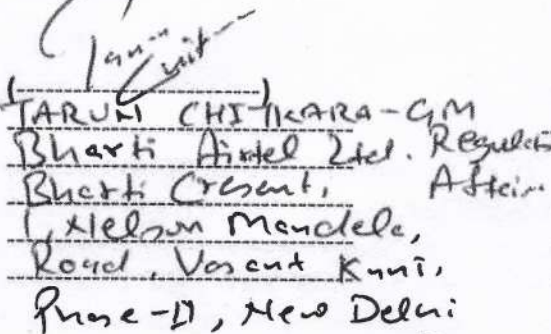 (TARUN CHITKARA-GM
Bharti Airtel Ltd. Regulat
Bharti Cresent, Affair
1, Nelson Mandela,
Road, Vasant Kunj,
Phase-II, New Delhi